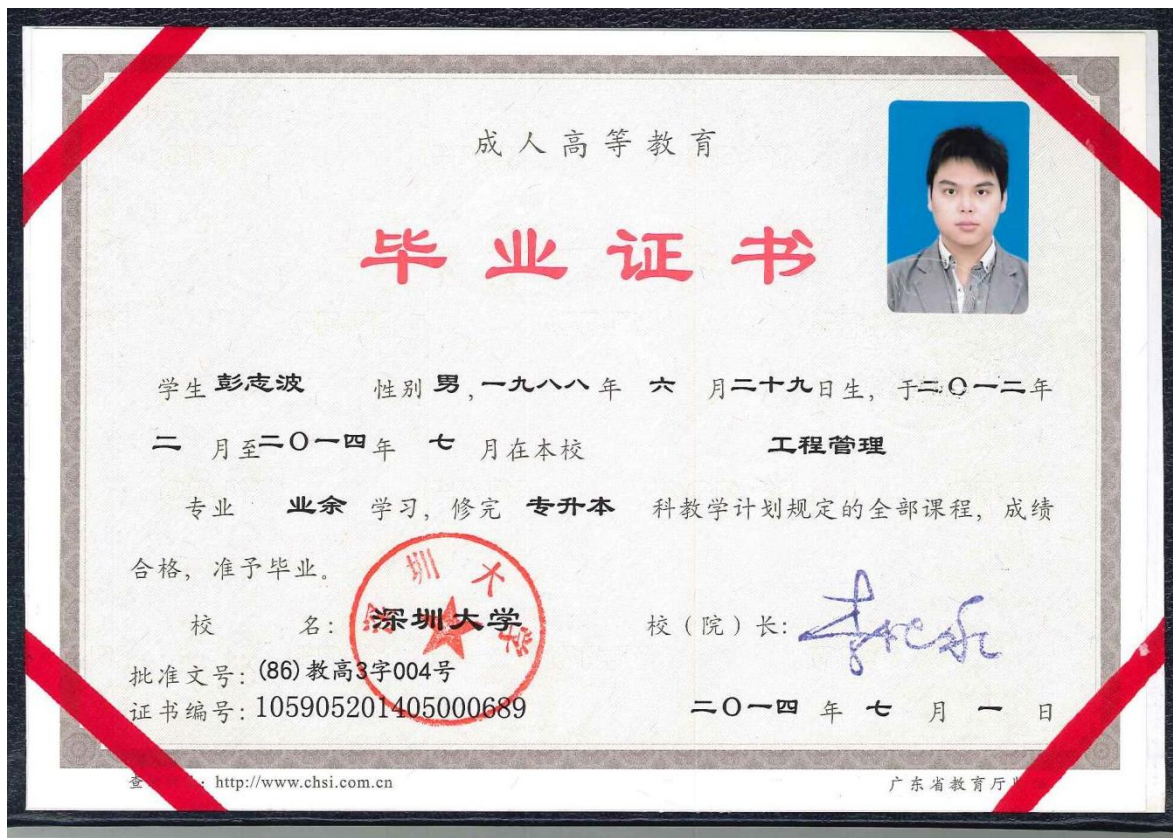 成人高等教育
毕业证书
学生 彭志波 性别 男，一九八八 年 六 月 二十九 日生，于 二〇一二 年
二 月至 二〇一四 年 七 月在本校 工程管理
专业 业余 学习，修完 专升本 科教学计划规定的全部课程，成绩
合格，准予毕业。
深圳大学
校 名：深圳大学 校（院）长：
批准文号：(86)教高3字004号
证书编号：105905201405000689 二〇一四 年 七 月 一 日
查 ：http://www.chsi.com.cn 广东省教育厅